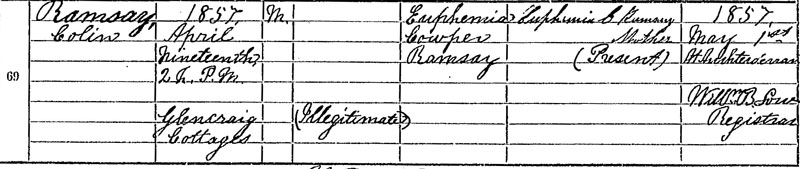 69
Ramsay,
Colin
1857,
April
Nineteenth,
2 h. P.M.
Glencraig
Cottages
M.
(Illegitimate)
Euphemia
Cowper
Ramsay
Euphemia C Ramsay
Mother
(Present)
1857,
May 1st
At Auchterderran
Willm B.
Registrar